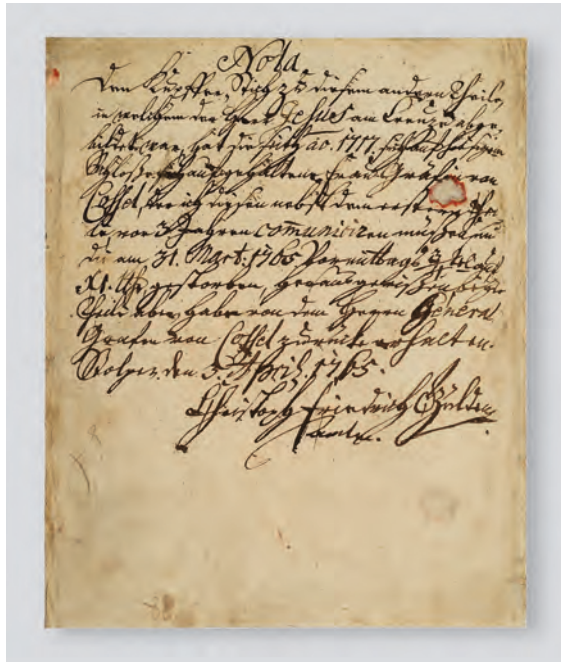 Nota
Den Kupffer-Stich zu diesem andern Theile,
in welchem der Herr Jesus am Creuze abge-
bildet war, hat die seith ao. 1717. sich auf hiesigem
Schloße sich aufgehaltene Frau Gräfin von
Cossel, der ich diesen nebst dem ersten Thei-
le vor 3 Jahren communiciren müßen, und
die am 31. Mart: 1765 Vormittags
XI. Uhr gestorben, herausgerißen, beyde
Theile aber habe von dem Herrn General
Grafen von Cossel zurücke erhalten.
Stolpen den 3. April. 1765.
Christoph Friedrich Gülden
Amtm.